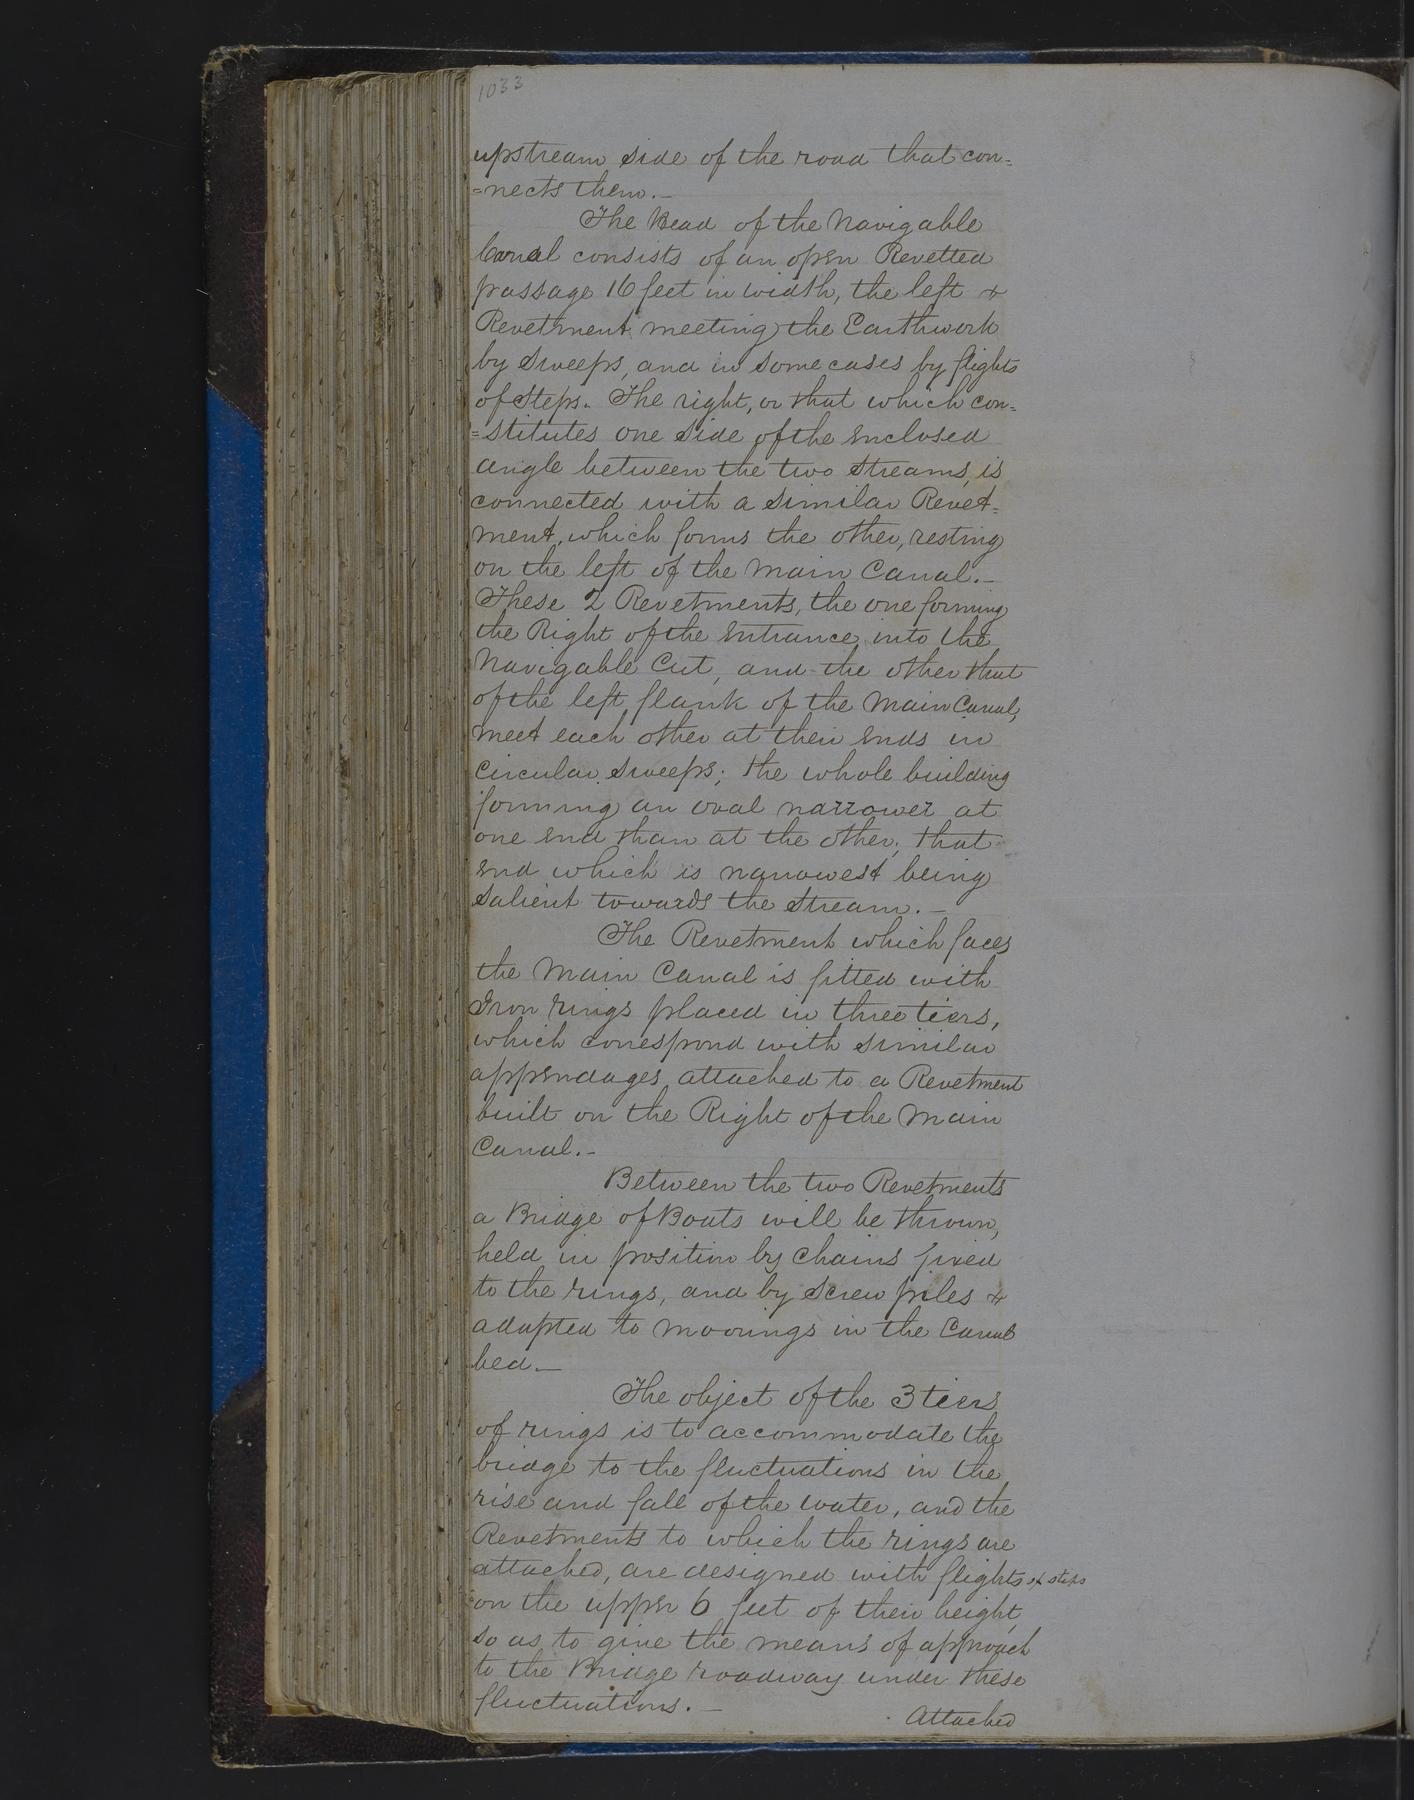 1033
upstream side of the road that con=
=nects them.—
The Head of the Navigable
Canal consists of an open Revetted
passage 16 feet in width, the left &
Revetment meeting the Earthwork
by Sweeps, and in some cases by flights
of Steps. The right, or that which con=
=stitutes one side of the enclosed
angle between the two streams, is
connected with a similar Revet=
ment, which forms the other, resting
on the left of the Main Canal.—
These 2 Revetments, the one forming
the Right of the entrance into the
Navigable Cut, and the other that
of the left flank of the Main Canal,
meet each other at their ends in
Circular Sweeps; the whole building
forming an oval narrower at
one end than at the other; that
end which is narrowest being
Salient towards the Stream.—
The Revetment which faces
the Main Canal is fitted with
Iron rings placed in three tiers,
which correspond with similar
appendages attached to a Revetment
built on the Right of the Main
Canal.—
Between the two Revetments
a Bridge of Boats will be thrown,
held in position by Chains fixed
to the rings, and by Screw piles &
adapted to moorings in the Canal
bed.—
The object of the 3 tiers
of rings is to accommodate the
bridge to the fluctuations in the
rise and fall of the water, and the
Revetments to which the rings are
attached, are designed with flights of steps
on the upper 6 feet of their height,
so as to give the means of approach
to the Bridge roadway under these
fluctuations.—
Attached